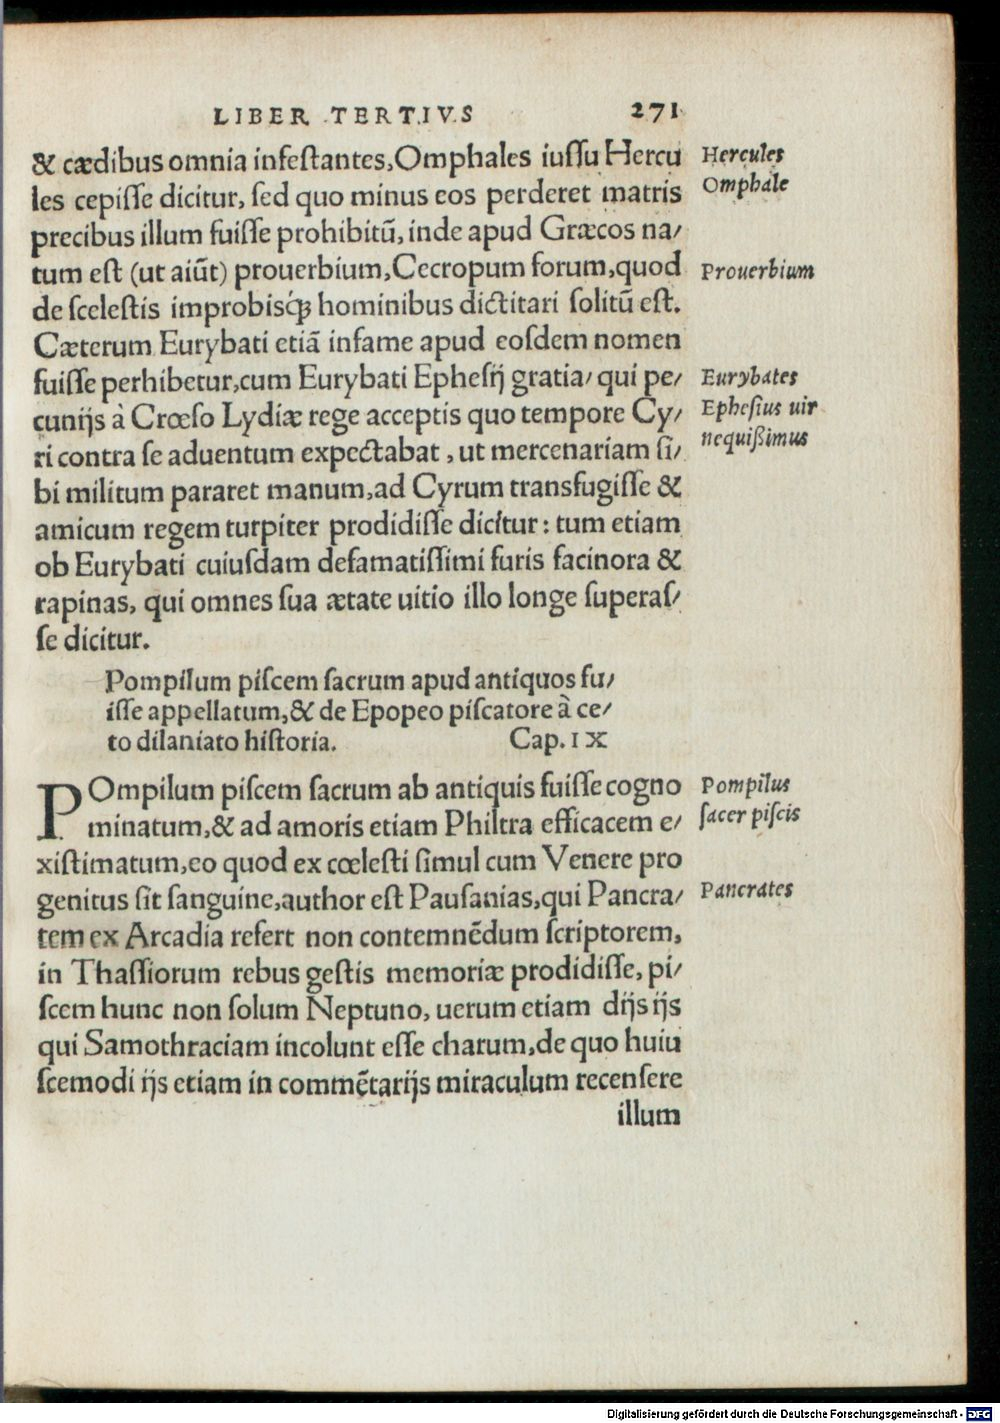 LIBER TERTIVS 271
& cædibus omnia infestantes, Omphales iussu Hercu
les cepisse dicitur, sed quo minus eos perderet matris
precibus illum fuisse prohibitū, inde apud Græcos na/
tum est (ut aiūt) prouerbium, Cecropum forum, quod
de scelestis improbisq́ꝫ hominibus dictitari solitū est.
Cæterum Eurybati etiā infame apud eosdem nomen
fuisse perhibetur, cum Eurybati Ephesij gratia/ qui pe/
cunijs à Crœso Lydiæ rege acceptis quo tempore Cy/
ri contra se aduentum expectabat, ut mercenariam si/
bi militum pararet manum, ad Cyrum transfugisse &
amicum regem turpiter prodidisse dicitur: tum etiam
ob Eurybati cuiusdam defamatissimi furis facinora &
rapinas, qui omnes sua ætate uitio illo longe superas/
se dicitur.
Hercules
Omphale
Prouerbium
Eurybates
Ephesius uir
nequißimus
Pompilum piscem sacrum apud antiquos fu/
isse appellatum, & de Epopeo piscatore à ce/
to dilaniato historia. Cap. IX
POmpilum piscem sacrum ab antiquis fuisse cogno
minatum, & ad amoris etiam Philtra efficacem e/
xistimatum, eo quod ex cœlesti simul cum Venere pro
genitus sit sanguine, author est Pausanias, qui Pancra/
tem ex Arcadia refert non contemnēdum scriptorem,
in Thassiorum rebus gestis memoriæ prodidisse, pi/
scem hunc non solum Neptuno, uerum etiam dijs ijs
qui Samothraciam incolunt esse charum, de quo huiu
scemodi ijs etiam in commētarijs miraculum recensere
illum
Pompilus
sacer piscis
Pancrates
Digitalisierung gefördert durch die Deutsche Forschungsgemeinschaft - DFG